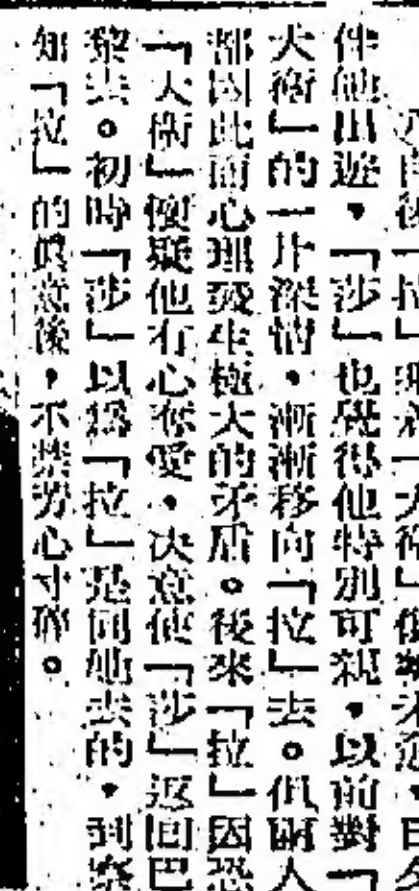 伴他出遊，「莎」也覺得他特別可親，以前對「
大衛」的一片深情，漸漸移向「拉」去。但兩人
都因此而心理發生極大的矛盾。後來「拉」因恐
「大衛」懷疑他有心奪愛，決意使「莎」返回巴
黎去。初時「莎」以爲「拉」是同她去的，到察
知「拉」的眞意後，不禁芳心寸碎。